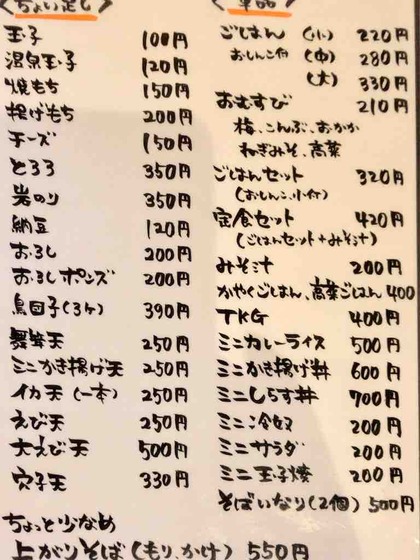 ちょい足し
玉子 100円
温泉玉子 120円
焼もち 150円
揚げもち 200円
チーズ 150円
とろろ 350円
岩のり 350円
納豆 120円
おろし 200円
おろしポンズ 200円
鳥団子(3ヶ) 390円
舞茸天 250円
ミニかき揚げ天 250円
イカ天(一本) 250円
えび天 250円
大えび天 500円
穴子天 330円
ちょっと少なめ
上がりそば(もり、かけ) 550円
単品
ごはん (小) 220円
おしんこ付 (中) 280円
(大) 330円
おむすび 210円
梅、こんぶ、おかか
ねぎみそ、高菜
ごはんセット 320円
(おしんこ、小付)
定食セット 420円
(ごはんセット+みそ汁)
みそ汁 200円
かやくごはん、高菜ごはん 400
TKG 400円
ミニカレーライス 500円
ミニかき揚げ丼 600円
ミニしらす丼 700円
ミニ冷奴 200円
ミニサラダ 200円
ミニ玉子焼 200円
そばいなり(2個) 500円